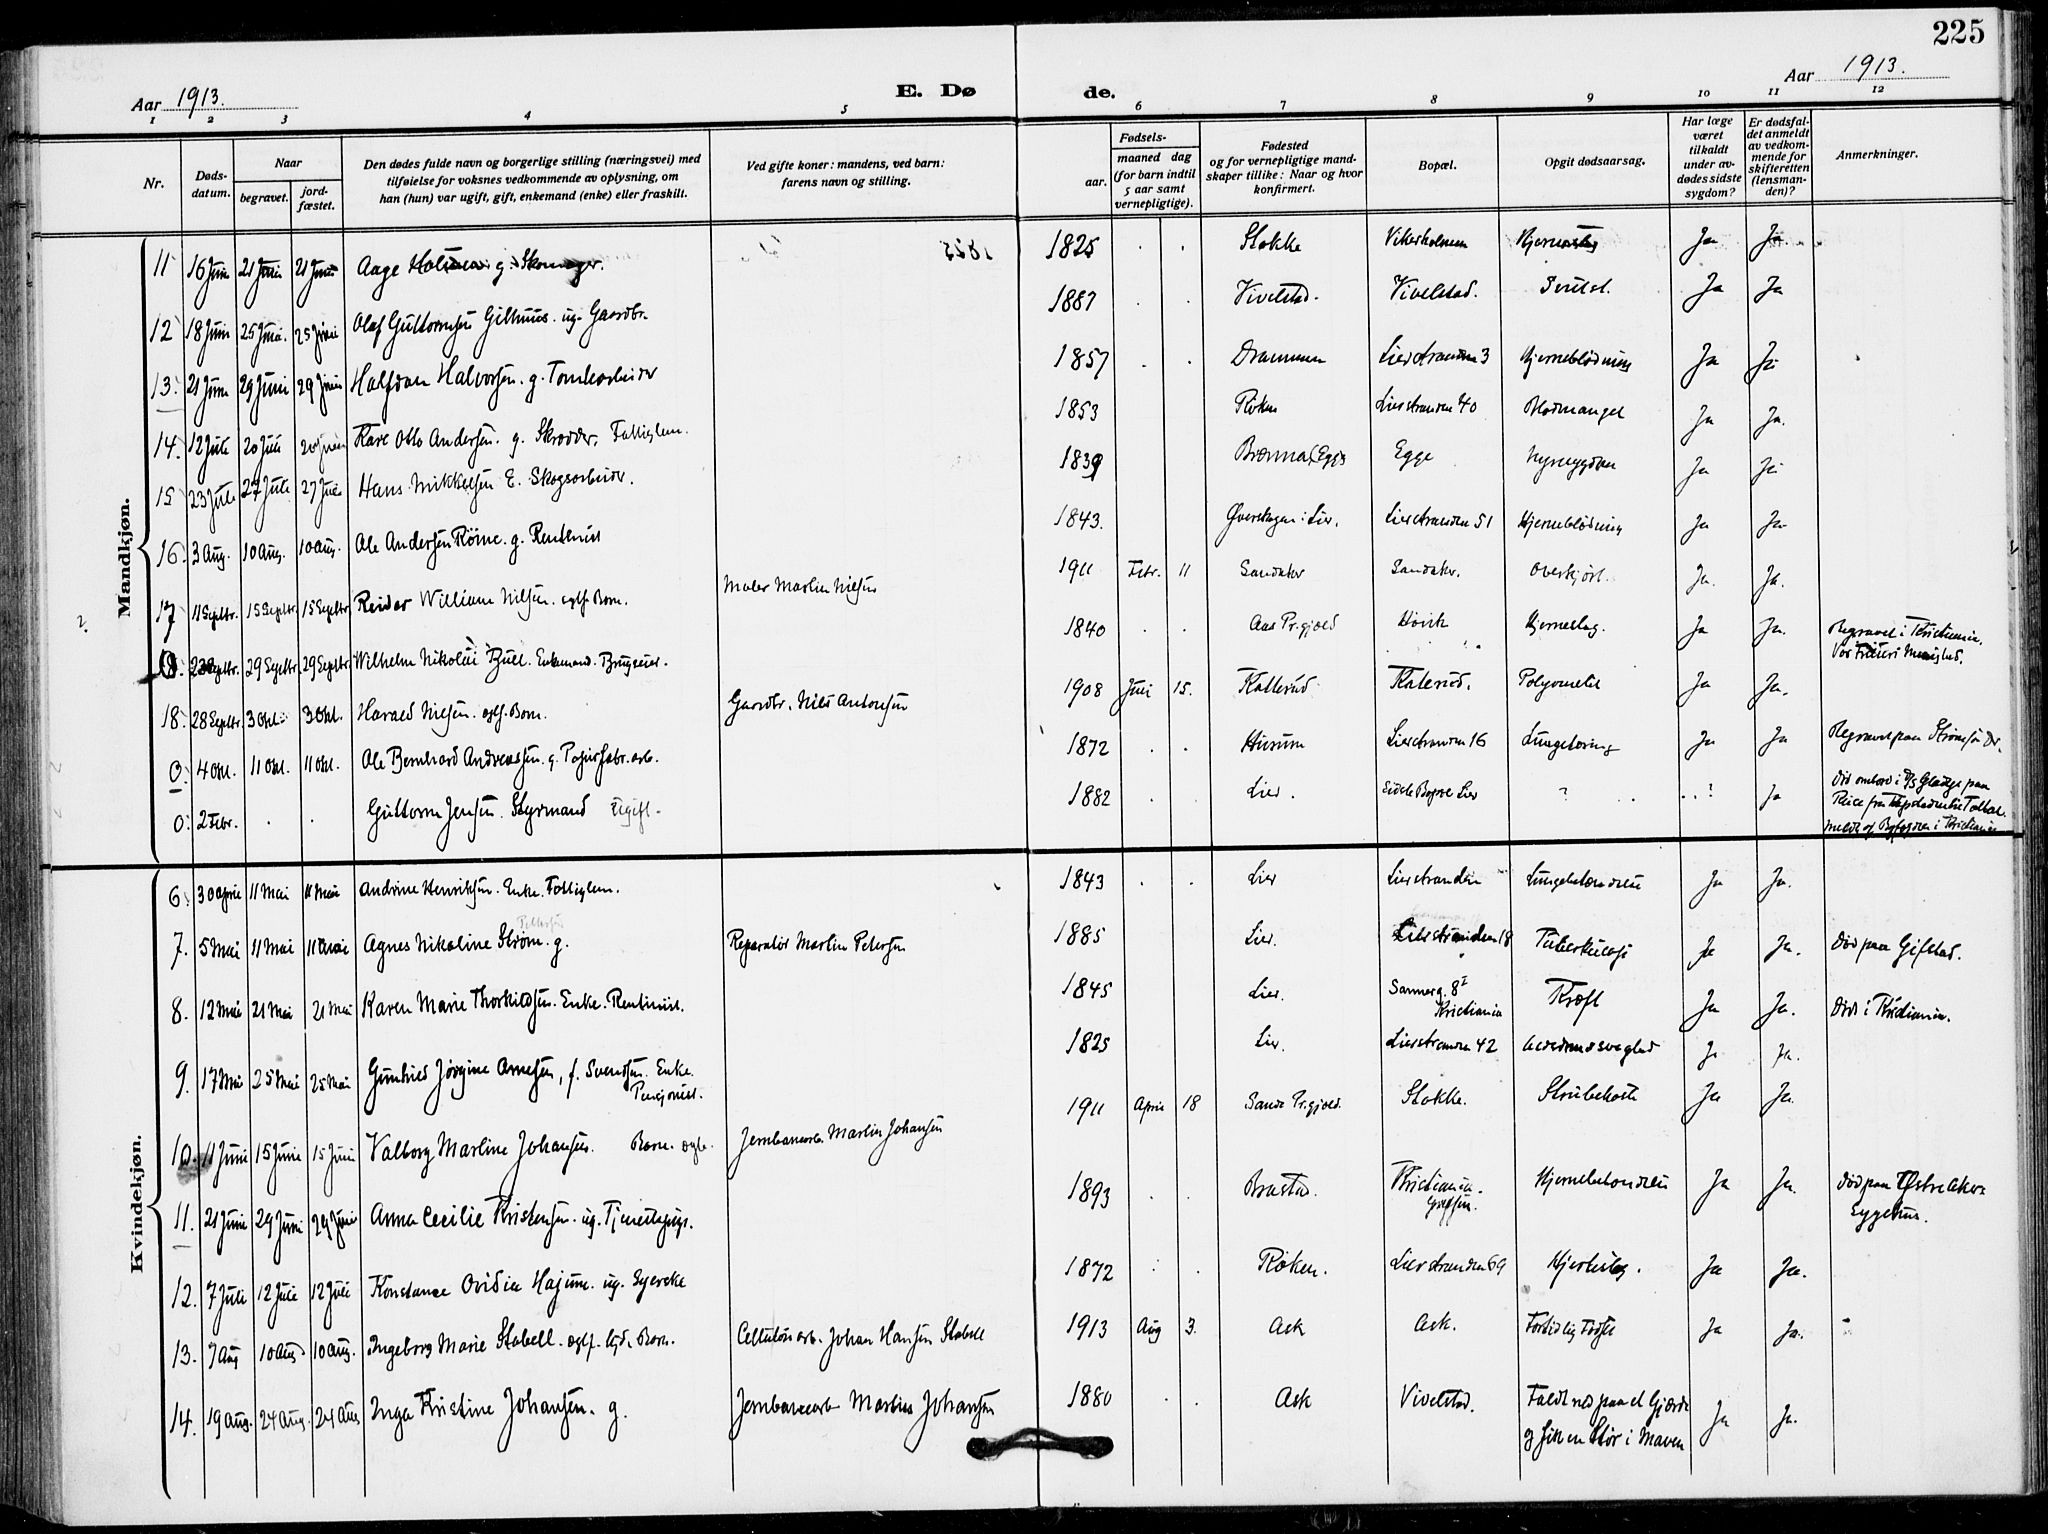 225
Aar 1913.
E. Dø de.
Aar 1913.
1 2 3 4 5 6 7 8 9 10 11 12
Nr.
Døds-
datum.
Naar
begravet.
jord-
fæstet.
Den dødes fulde navn og borgerlige stilling (næringsvei) med
tilføielse for voksnes vedkommende av oplysning, om
han (hun) var ugift, gift, enkemand (enke) eller fraskilt.
Ved gifte koner: mandens, ved barn:
farens navn og stilling.
Fødsels-
aar.
maaned dag
(for barn indtil
5 aar samt
vernepligtige).
Fødested
og for vernepligtige mand-
skaper tillike: Naar og hvor
konfirmert.
Bopæl.
Opgit dødsaarsag.
Har læge
været
tilkaldt
under av-
dødes sidste
sygdom?
Er dødsfal-
det anmeldt
av vedkom-
mende for
skifteretten
(lensman-
den)?
Anmerkninger.
Mandkjøn.
11 16 Juni 21 Juni 21 Juni Aage g. Skomager. 1825 Stokke Ja Ja
12 18 Juni 25 Juni. 25 Juni Olaf Guttormsen Gilhuus. ug. Gaardbr. 1887 Vivelstad. Vivelstad. Ja Ja
13. 21 Juni 29 Juni 29 Juni Halfdan Halvorsen. g. Tomtearbeider 1857 Drammen Lierstranden 3 Hjerneblødning Ja Ja
14. 12 Juli 20 Juli 20 Juli Kare Otto Andersen. g. Skrædder. Fattiglem. 1853 Røken Lierstranden 40 Blodmangel Ja Ja.
15 23 Juli 27 Juli 27 Juli Hans Mikkelsen E. Skogsarbeider. 1839 Egge Nyresygdom Ja Ja
16. 3 Aug. 10 Aug. 10 Aug. Ole Andersen Røine. g. Rentenist 1843. Øverskogen i Lier. Lierstranden 51 Hjerneblødning Ja Ja
17 11 Septbr. 15 Septbr. 15 Septbr Reidar William Nilsen. egtf. Barn. Maler Martin Nilsen 1911 Febr. 11 Sandaker Sandaker. Overkjørt. Ja. Ja.
29 Septbr. 29 Septbr Wilhelm Nikolai Bull. Enkemand. Brugseier. 1840 Aas Pr.gjeld Høvik Hjerneslag. Ja Ja. Begravet i Kristiania.
Vor Frelsers Menighed.
18. 28 Septbr. 3 Okt. 3 Okt. Harald Nilsen. egtf. Barn. Gaardbr. Nils Antonsen 1908 Juni 15. Katterud Katterud. Ja Ja.
0. 4 Okt. 11 Okt. 11 Okt. Ole Bernhard Andreassen. g. Papirfabr.arb. 1872 Hurum Lierstranden 16 Lungetæring Ja Ja Begravet paa Strømsø Dr.
0. 2 Febr. Guttorm Jensen. Styrmand Ugift. 1882 Lier. Sidste Bopæl Lier ? ..? Ja Død ombord i
Kvindekjøn.
6. 30 April 11 Mai 11 Mai Andrine Henriksen. Enke. Fattiglem. 1843 Lier Lierstranden Lungebetændelse Ja Ja.
7. 5 Mai 11 Mai 11 Mai Agnes Nikoline Strøm. g. Reparatør Martin Petersen 1885 Lier. Lierstranden 18 Tuberkulose Ja Ja. Død paa Gifstad.
8. 12 Mai 21 Mai 21 Mai Karen Marie Thorkildsen. Enke. Rentenist. 1845 Lier. Sannerg. 8 I
Kristiania Kræft Ja Ja. Død i Kristiania.
9. 17 Mai 25 Mai 25 Mai Gunhild Jørgine Arnesen, f. Svendsen. Enke.
Pensjonist. 1825 Lier. Lierstranden 42 Alderdomssvaghed Ja Ja.
10. 11 Juni 15 Juni 15 Juni Valborg Martine Johansen. Barn. egte. Jernbanearb. Martin Johansen 1911 April 18 Sande Pr.gjeld. Stokke. Strubehoste Ja Ja.
11. 21 Juni 29 Juni 29 Juni Anna Cecilie Kristensen. ug. Tjenestepige. 1893 Brastad. Kristiania.
Grefsen. Hjernebetændelse Ja Ja. Død paa Østre Akers
Sygehus.
12. 7 Juli 12 Juli 12 Juli Konstanse Ovidia Hajum. ug. Syerske 1872 Røken. Lierstranden 69 Hjerteslag. Ja Ja.
13. 7 Aug 10 Aug 10 Aug. Ingeborg Marie Stabell. egtf. hjd. Barn. Cellulosearb. Johan Hansen Stabell 1913 Aug 3. Ask Ask. Fortidlig Fødsel Ja Ja.
14. 19 Aug. 24 Aug. 24 Aug Inga Kristine Johansen. g. Jernbanearb. Martin Johansen 1880 Ask Vivelstad. Faldt ned paa et Gjærde
og fik en Stør i Maven Ja Ja.